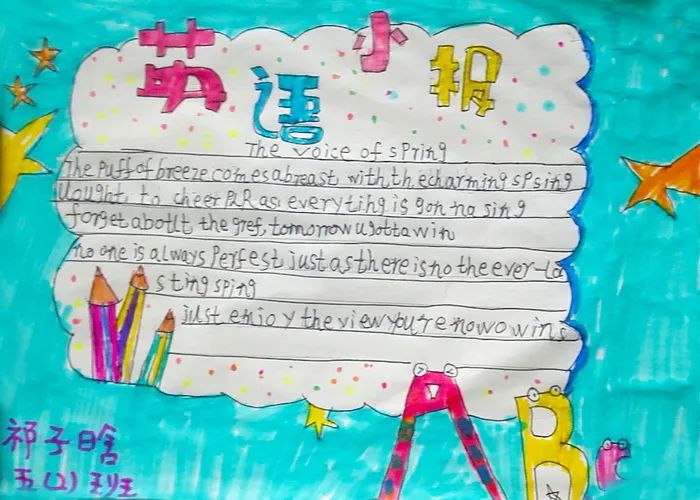 英语小报
The voice of spring
The puff of breeze comes abreast with the charming spsing
Uought to cheer as everyting is gon na sing
forget about the gref, tomorrow u gotta win
no one is always Perfest just as there is no the ever-la
sting sping
just enjoy the view you're now owing
A B C
祁子晗
五(2)班